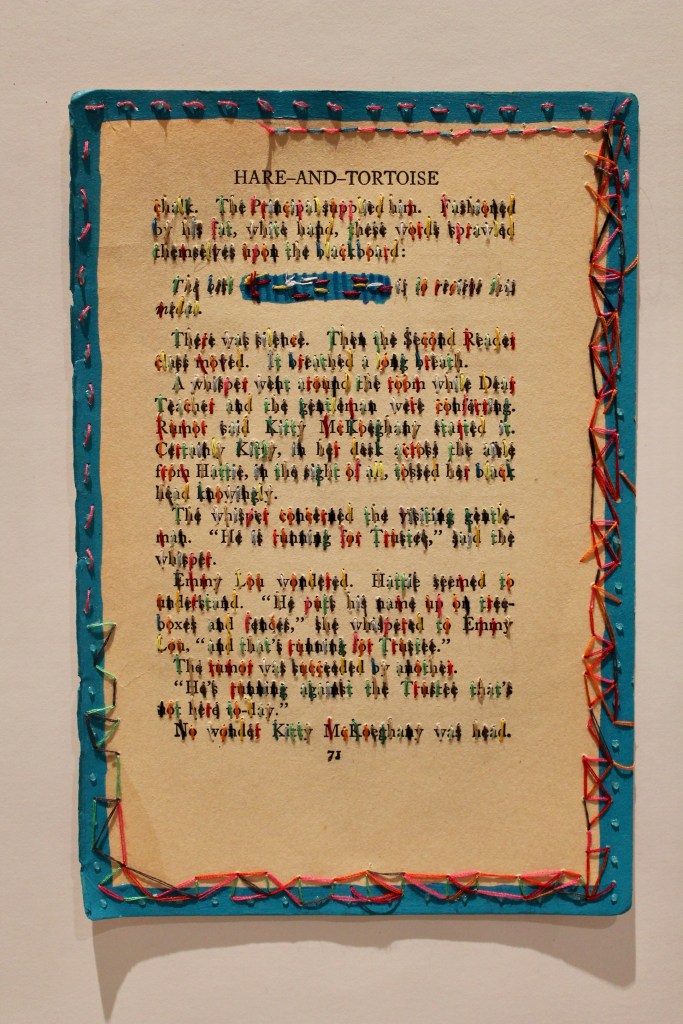 HARE–AND–TORTOISE
chalk. The Principal supplied him. Fashioned
by his fat, white hand, these words sprawled
themselves upon the blackboard:
The best
is to receive this
medal.
There was silence. Then the Second Reader
class moved. It breathed a long breath.
A whisper went around the room while Dear
Teacher and the gentleman were conferring.
Rumor said Kitty McKoeghany started it.
Certainly Kitty, in her desk across the aisle
from Hattie, in the sight of all, tossed her black
head knowingly.
The whisper concerned the visiting gentle-
man. “He is running for Trustee,” said the
whisper.
Emmy Lou wondered. Hattie seemed to
understand. “He puts his name up on tree-
boxes and fences,” she whispered to Emmy
Lou, “and that’s running for Trustee.”
The rumor was succeeded by another.
“He’s running against the Trustee that’s
not here to-day.”
No wonder Kitty McKoeghany was head.
71